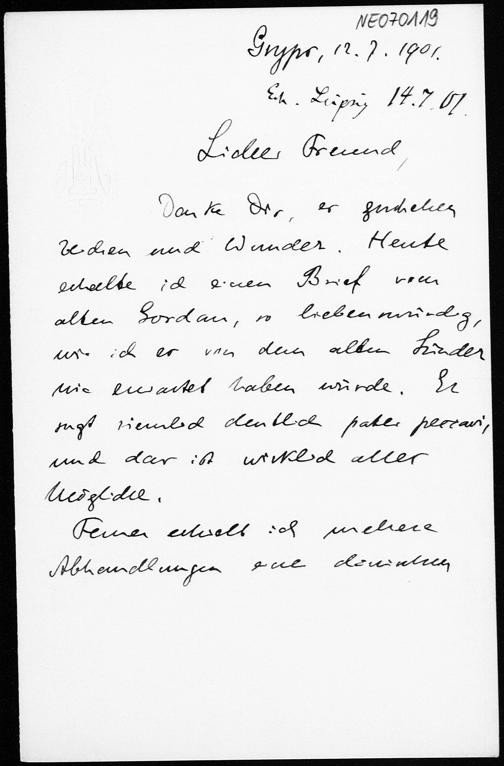 NEO70119
Gryps, 12.7.1901.
Erh. Leipzig 14.7.01.
Lieber Freund,
Denke Dir, es geschehen
Zeichen und Wunder. Heute
erhalte ich einen Brief vom
alten Gordan, so liebenswürdig,
wie ich es von dem alten Sünder
nie erwartet haben würde. Er
sagt ziemlich deutlich pater peccavi,
und das ist wirklich alles
Mögliche.
Ferner erhielt ich mehrere
Abhandlungen eines dänischen